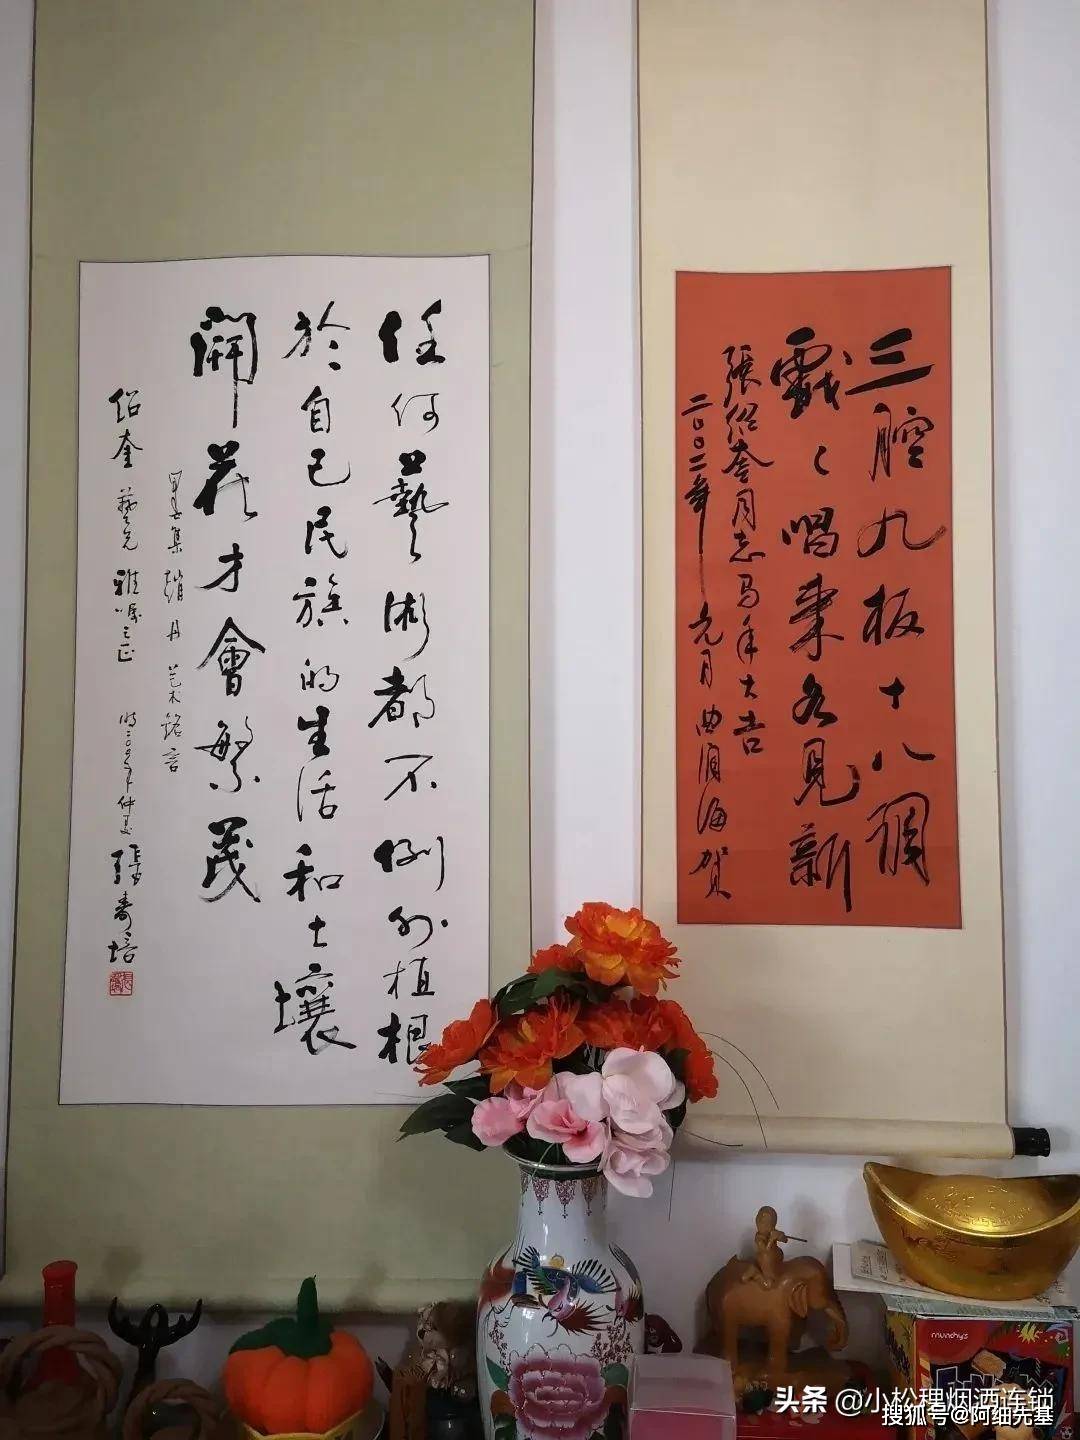 三腔九板十八調
戲々唱来各見新
張绍奎同志马年大吉
二〇〇二年元月曲润海贺
任何藝術都不例外植根
於自己民族的生活和土壤
開花才會繁茂
集趙丹艺术銘言
绍奎藝兄雅嘱之正 仲夏 張寿培
munchy's
头条 @小松理烟酒连锁
搜狐号@阿细先基